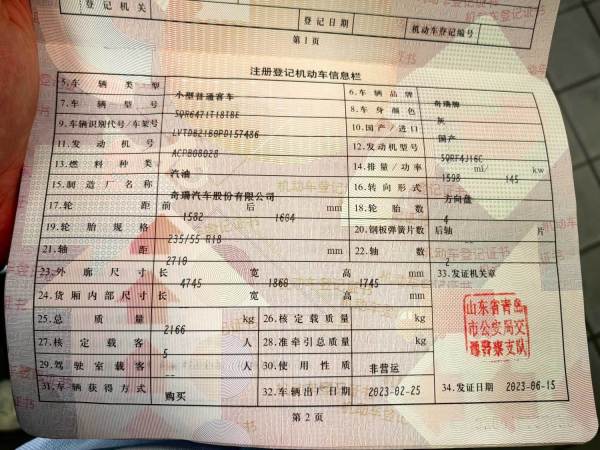 登记机关 登记日期 机动车登记编号
第1页
注册登记机动车信息栏
5.车辆类型 小型普通客车 6.车辆品牌 奇瑞牌
7.车辆型号 SQR6471T18TBE 8.车身颜色 灰
9.车辆识别代号/车架号 LVTDB21B8PD157486 10.国产/进口 国产
11.发动机号 ACPB08028 12.发动机型号 SQRF4J16C
13.燃料种类 汽油 14.排量/功率 1598 ml/ 145 kw
15.制造厂名称 奇瑞汽车股份有限公司 16.转向形式 方向盘
17.轮距 前 1582 后 1604 mm 18.轮胎数 4
19.轮胎规格 235/55 R18 20.钢板弹簧片数 后轴 片
21.轴距 2710 mm 22.轴数 2
23.外廓尺寸 长 4745 宽 1860 高 1745 mm 33.发证机关章
24.货厢内部尺寸 长 宽 高 mm
山东省青岛
市公安局交
通警察支队
25.总质量 2166 kg 26.核定载质量 kg
27.核定载客 5 人 28.准牵引总质量 kg
29.驾驶室载客 人 30.使用性质 非营运
31.车辆获得方式 购买 32.车辆出厂日期 2023-02-25 34.发证日期 2023-06-15
第2页